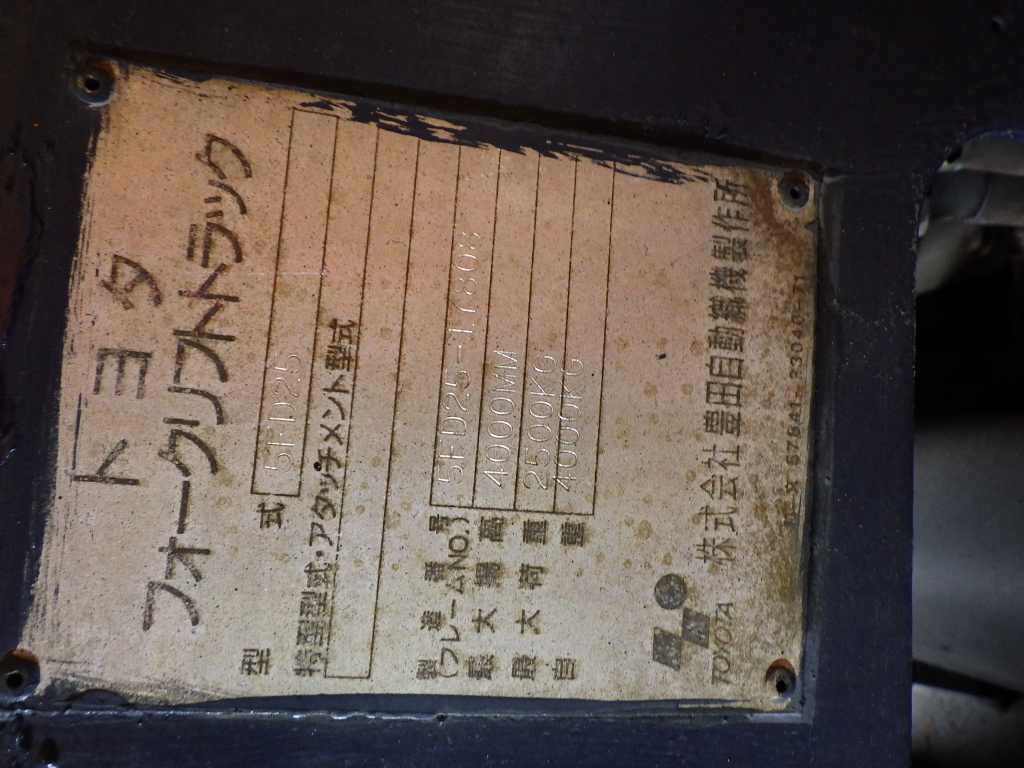 トヨタ
フォークリフトトラック
型式 5FD25
特型型式・アタッチメント型式
製造番号 5FD25-17808
(フレームNO.)
最大揚高 4000MM
最大荷重 2500KG
自重 4000KG
TOYOTA 株式会社 豊田自動織機製作所
57841-23040-71